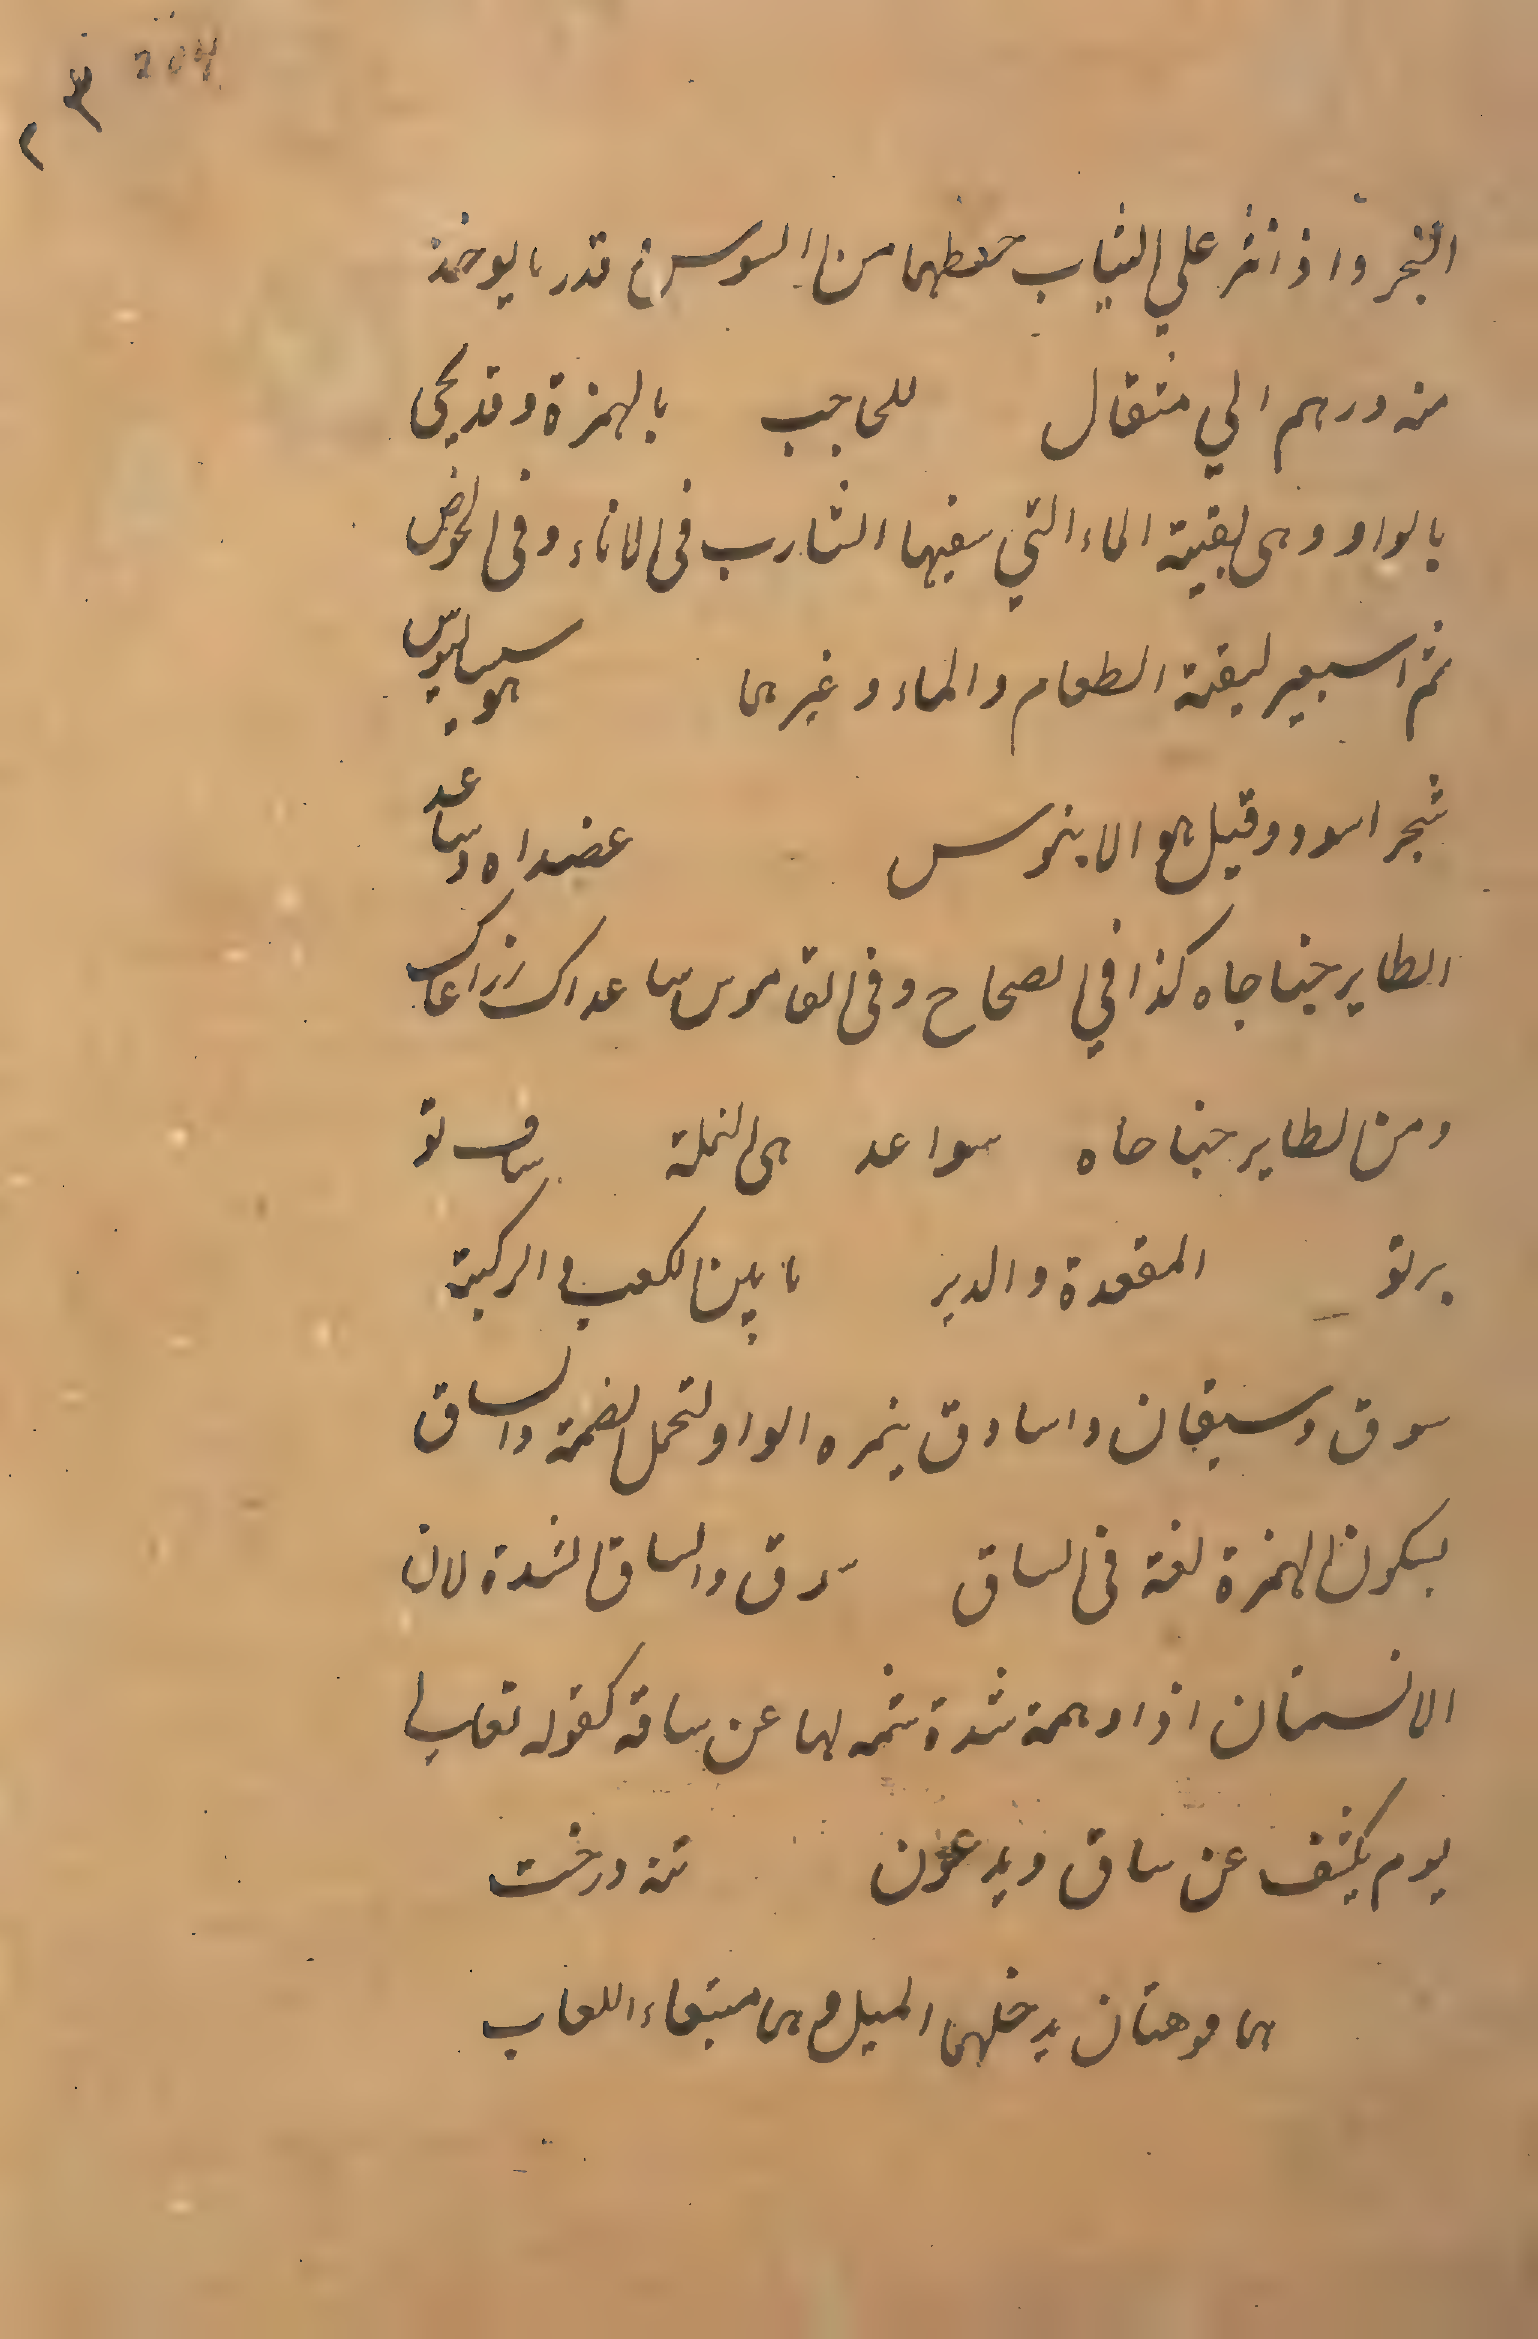 204
٢٣
الشجر واذ انثر علي الثياب حفظهما من السوس قدر ما يوخذ
منه درهم الي مثقال للحاجب بالهمزة وقد يحى
بالواو وهى بقية الماء التي سقيها الشارب فى الاناء وفى الحوض
ثم اسبعير لبقية الطعام والماء وغيرهما سيساليوس هو
شجر اسود وقيل هو الابنوس عضداه وساعد
الطاير جناحاه كذا في الصحاح وفى القاموس ساعداك ذراعاك
ومن الطاير جناحاه سواعد هى النملة ساف تو
برتو المقعدة والدبر ما بين الكعب و الركبة
سوق وسيقان واساوق بنمره الواو لتحمل الضمة والساق
بسكون الهمزة لغة فى الساق سوق والساق الشدة لان
الانسان اذا دهمة شدة شمر لها عن ساقه كقوله تعالي
يوم يكشف عن ساق ويدعون تنه درخت
هما موهتان يدخلهما الميل و هما منبعاء اللعاب